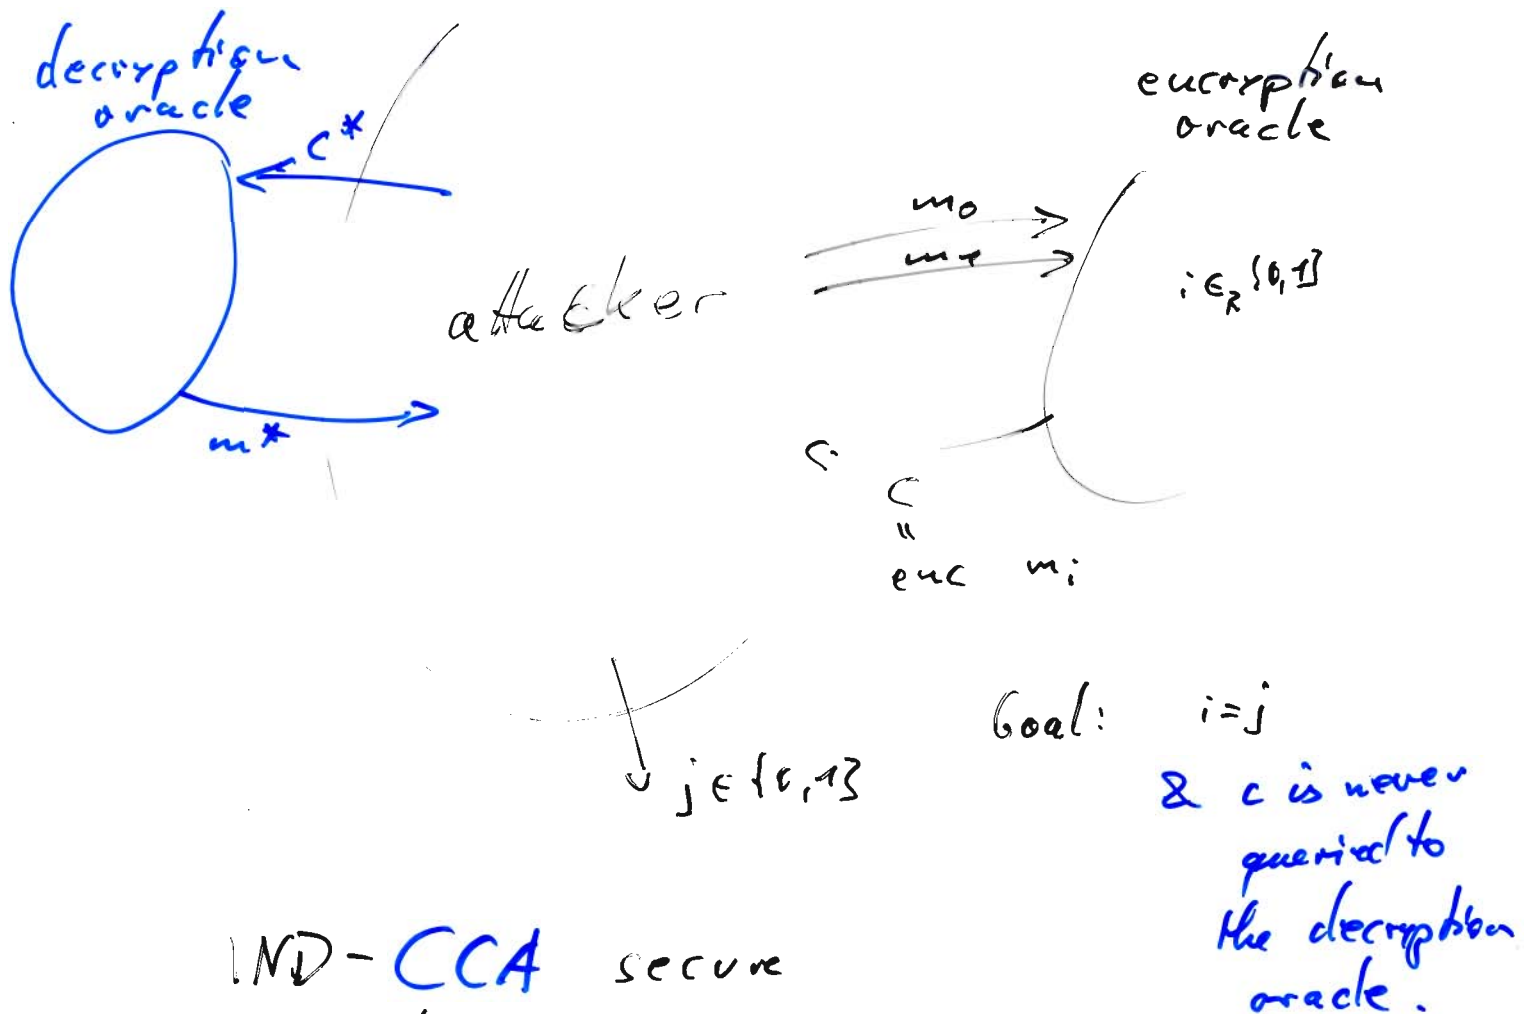 decryption
oracle
encryption
oracle
c*
m₀
m₁
i ∈_R {0,1}
attacker
m*
c
c
"
enc mᵢ
j ∈ {0,1}
Goal: i=j
& c is never
queried to
the decryption
oracle.
IND-CCA secure